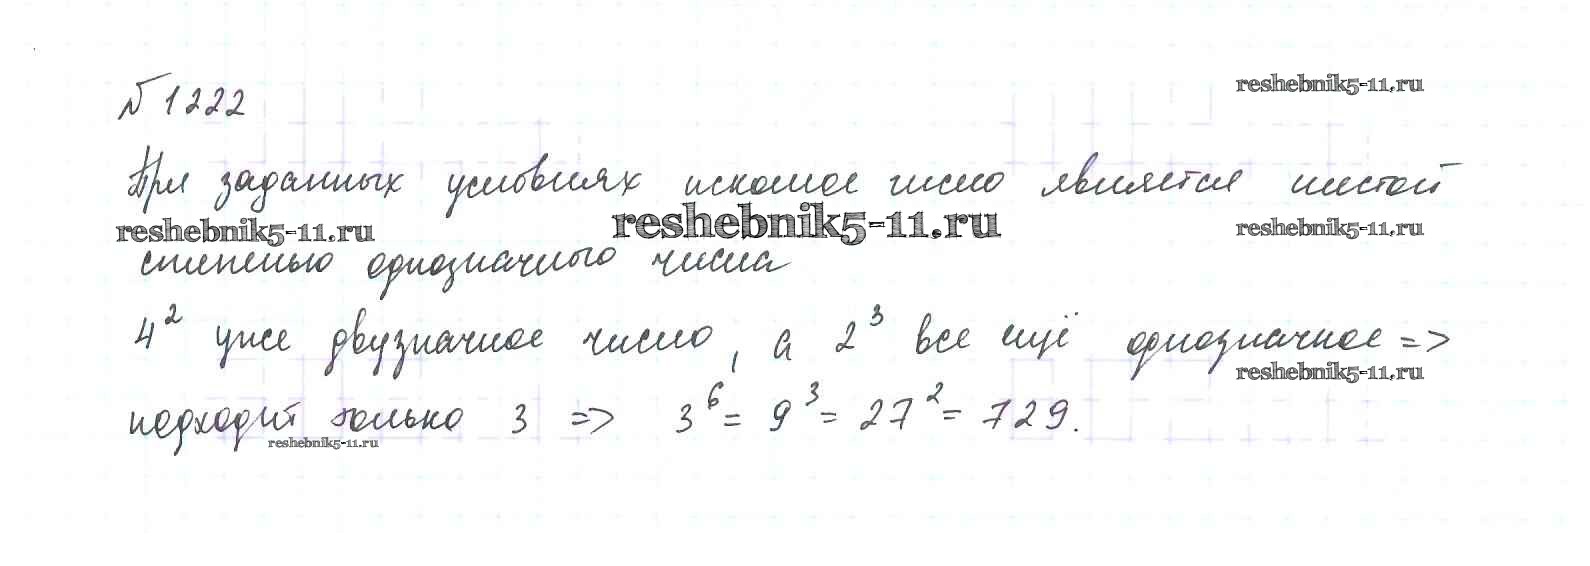 № 1222
reshebnik5-11.ru
При заданных условиях искомое число является шестой
reshebnik5-11.ru reshebnik5-11.ru reshebnik5-11.ru
степенью однозначного числа
4² уже двузначное число, а 2³ все ещё однозначное =>
reshebnik5-11.ru
подходит только 3 => 3⁶ = 9³ = 27² = 729.
reshebnik5-11.ru